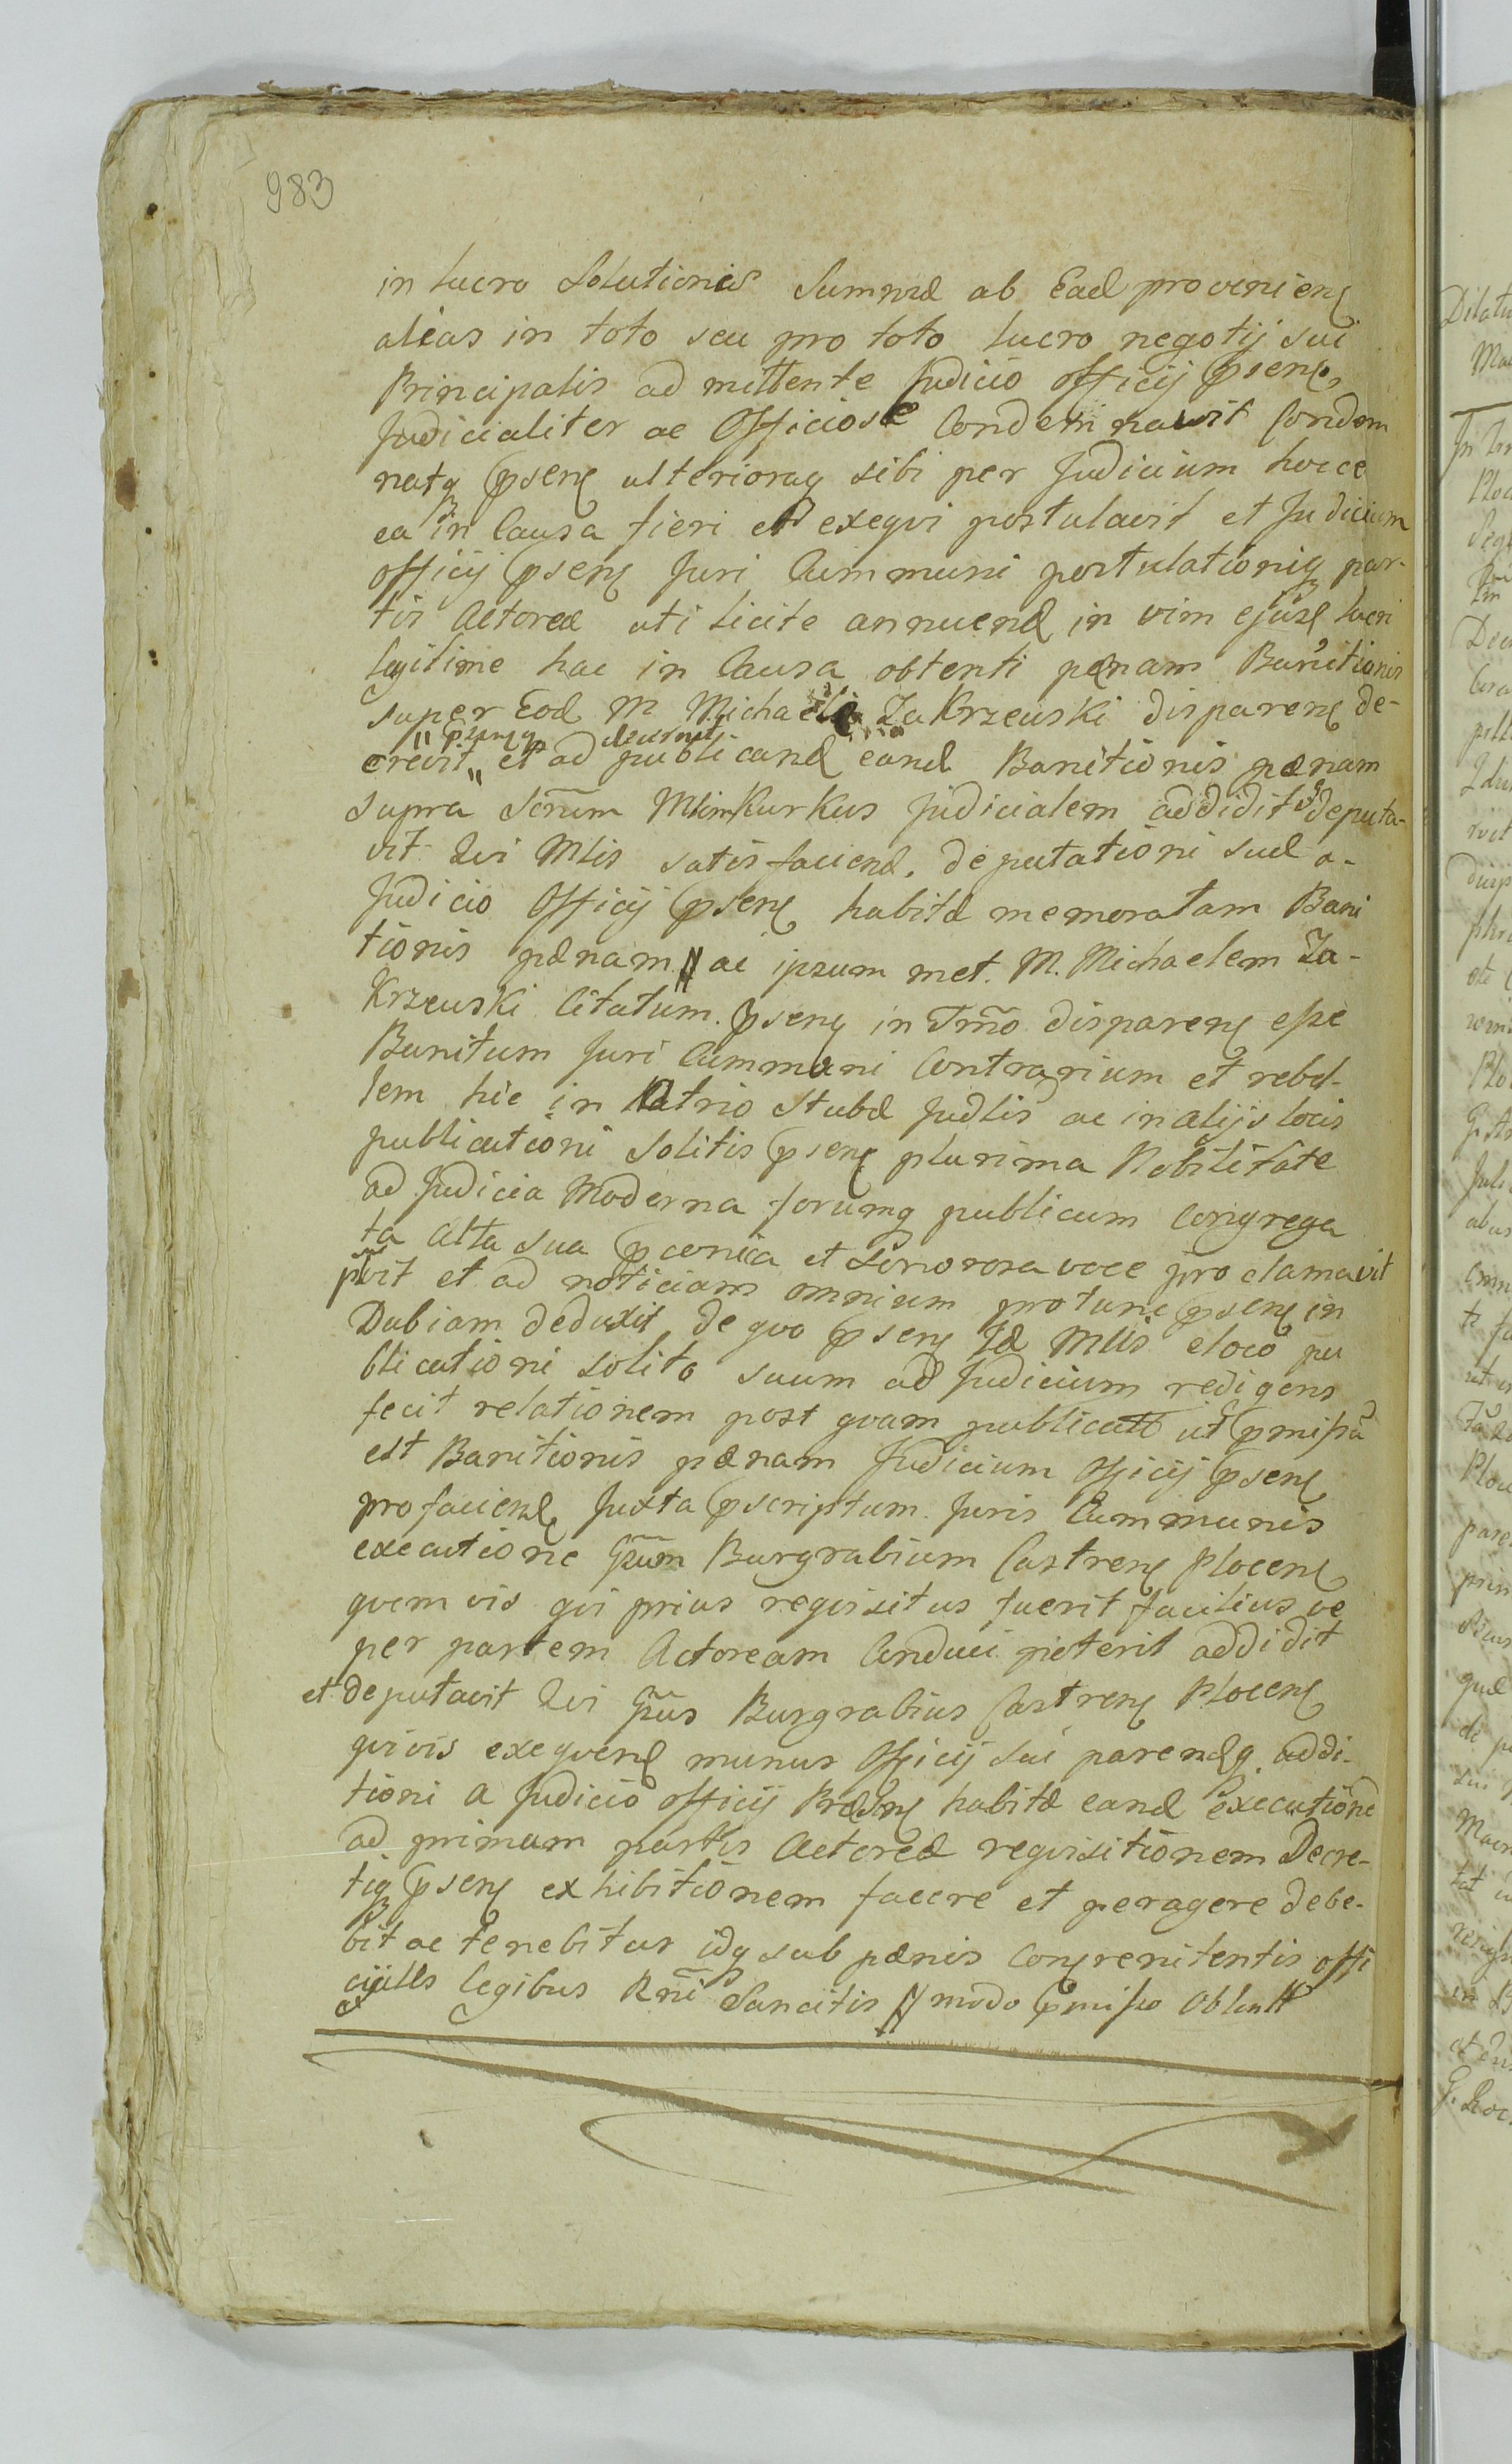 983
in lucro Solutionis Summæ ab Ead provenien
alias in toto seu pro toto lucro negotij sui
Principalis ad mittente Judicio officij psen
Judicialiter ac Officiose Condemnavit Condem
natq psen ulterioraq sibi per Judicium hocce
ea in Causa fieri et exeqvi postulavit et Judicium
officij psen Juri Cummuni postulationiq par-
tis Actoreæ uti licite annuend in vim ejusd lucri
legitime hac in Causa obtenti pænam Banitionis
super Eod M Michaele ZaKrzewski disparen de-
crevit et ad publicand eand Banitionis pænam
decrevit
supra Scrum Mlem Kurkus Judicialem addidit deputa-
vit Qvi Mlis satisfaciend. deputationi suæ a-
Judicio Officij psen habitæ memoratam Bani
tionis pænam // ac ipsum met. M. Michaelem Za-
Krzewski Citatum. psen in Tmo disparen esse
Banitum Juri Cummuni Contrarium et rebel-
lem hic in Atrio Stubæ Judlis ac in alijs locis
publicationi Solitis psen plurima Nobilitate
ad Judicia Moderna forumq publicum Congrega
ta alta sua pconica et sonorosa voce proclamavit
pvit et ad noticiam omnium pro tunc psen in
Dubiam deduxit de qvo psen Id Mlis eloco pu
blicationi solito suum ad Judicium redigens
fecit relationem post qvam publicatt ut pmissu
est Banitionis pænam Judicium Officij psen
pro faciend Juxta pscriptum Juris Cummunis
executione Gsum Burgrabium Castren Plocen
qvemvis qvi prius reqvisitus fuerit facilius ve
per partem Actoream Conduci poterit addidit
et deputavit Qvi Gsus Burgrabius Castren Plocen
qvivis exeqvend munus Officij sui parendq addi-
tioni a Judicio officij Præsen habitæ eand executione
ad primam partis Actoreæ reqvisitionem Decre-
tiq psen exhibitionem facere et peragere debe-
bit ac tenebitur idq sub pænis Contrenitentis offi
cijalls legibus Rni Sancitis // modo pmisso Oblatt